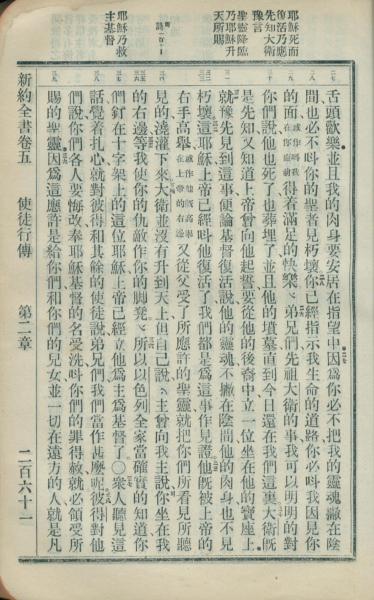 耶穌死而
復活乃應
先知大衛
豫言
聖靈降臨
乃耶穌升
天所賜
詩一百十
耶穌乃救
主基督
舌頭歡樂並且我的肉身要安居在指望中因爲你必不把我的靈魂撇在陰
間也必不叫你的聖者見朽壞你已經指示我生命的道路你必叫我因見你
的面或作叫我在你面前得着滿足的快樂弟兄們先祖大衛的事我可以明明的對
你們說他也死了也葬埋了並且他的墳墓直到今日還在我們這裏大衛既
是先知又知道上帝曾向他起誓要從他的後裔中立一位坐在他的寶座上
就豫先見到這事便論基督復活說他的靈魂不撇在陰間他的肉身也不見
朽壞這耶穌上帝已經叫他復活了我們都是爲這事作見證他既被上帝的
右手高舉或作他既高舉在上帝的右邊又從父受了所應許的聖靈就把你們所看見所聽
見的澆灌下來大衛並沒有升到天上但自己說主曾向我主說你坐在我
的右邊等我使你的仇敵作你的脚凳所以以色列全家當確實的知道你
們釘在十字架上的這位耶穌上帝已經立他爲主爲基督了〇衆人聽見這
話覺着扎心就對彼得和其餘的使徒說弟兄們我們當作甚麼呢彼得對他
們說你們各人要悔改奉耶穌基督的名受洗叫你們的罪得赦就必領受所
賜的聖靈因爲這應許是給你們和你們的兒女並一切在遠方的人就是凡
新約全書卷五 使徒行傳 第二章 二百六十一